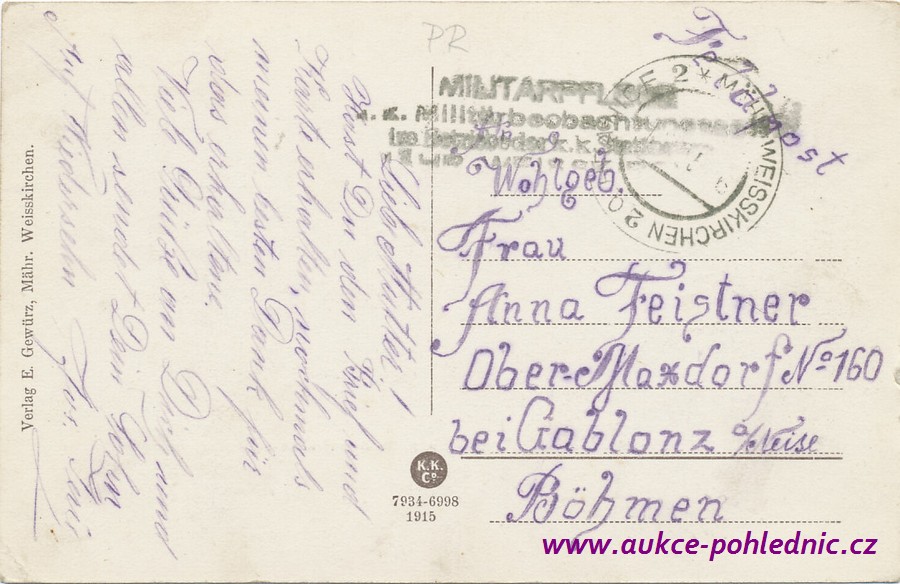 PR
Feldpost
MILITÄRPFLEGE
k. k. Militärbeobachtungs
MÄHR. WEISSKIRCHEN 2
Wohlgeb.
Frau
Anna Feistner
Ober-Maxdorf No 160
bei Gablonz a/Neise
Böhmen
Liebe Mutter!
Hast Du den Brief und
Karte erhalten, nochmals
meinen besten Dank für
das erhaltene.
Viele Grüße an Dich und
allen sendet Dein Sohn
Auf Wiedersehn
Verlag E. Gewürz, Mähr. Weisskirchen.
K.K.
Co.
7934-6998
1915
www.aukce-pohlednic.cz